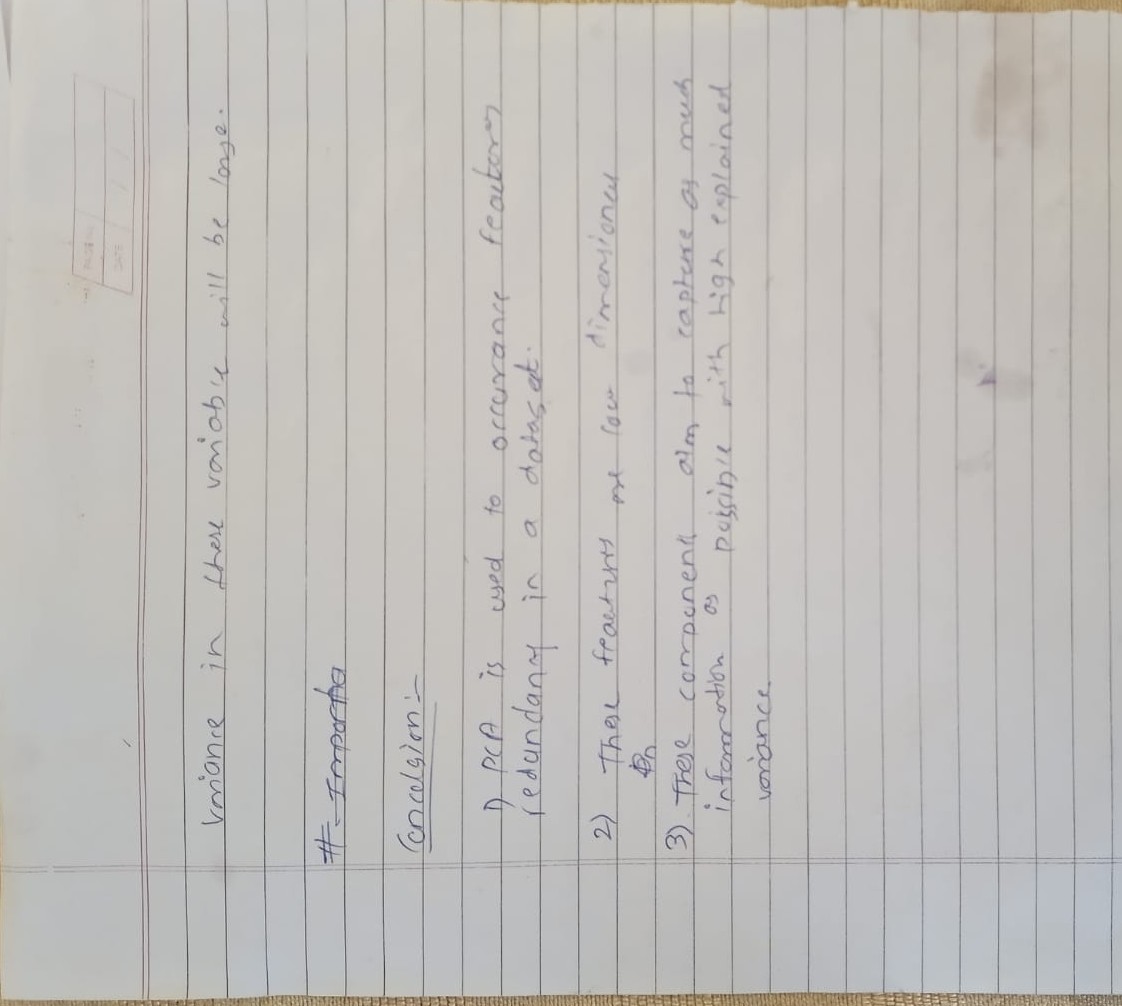 PAGE No.
DATE / /
Variance in these variable will be large.
# Importa
Conculsion :-
1) PCA is used to occurance feactures
redundancy in a dataset.
2) These feactures are low dimensional
3) These components aim to capture as much
information as possible with high explained
variance.